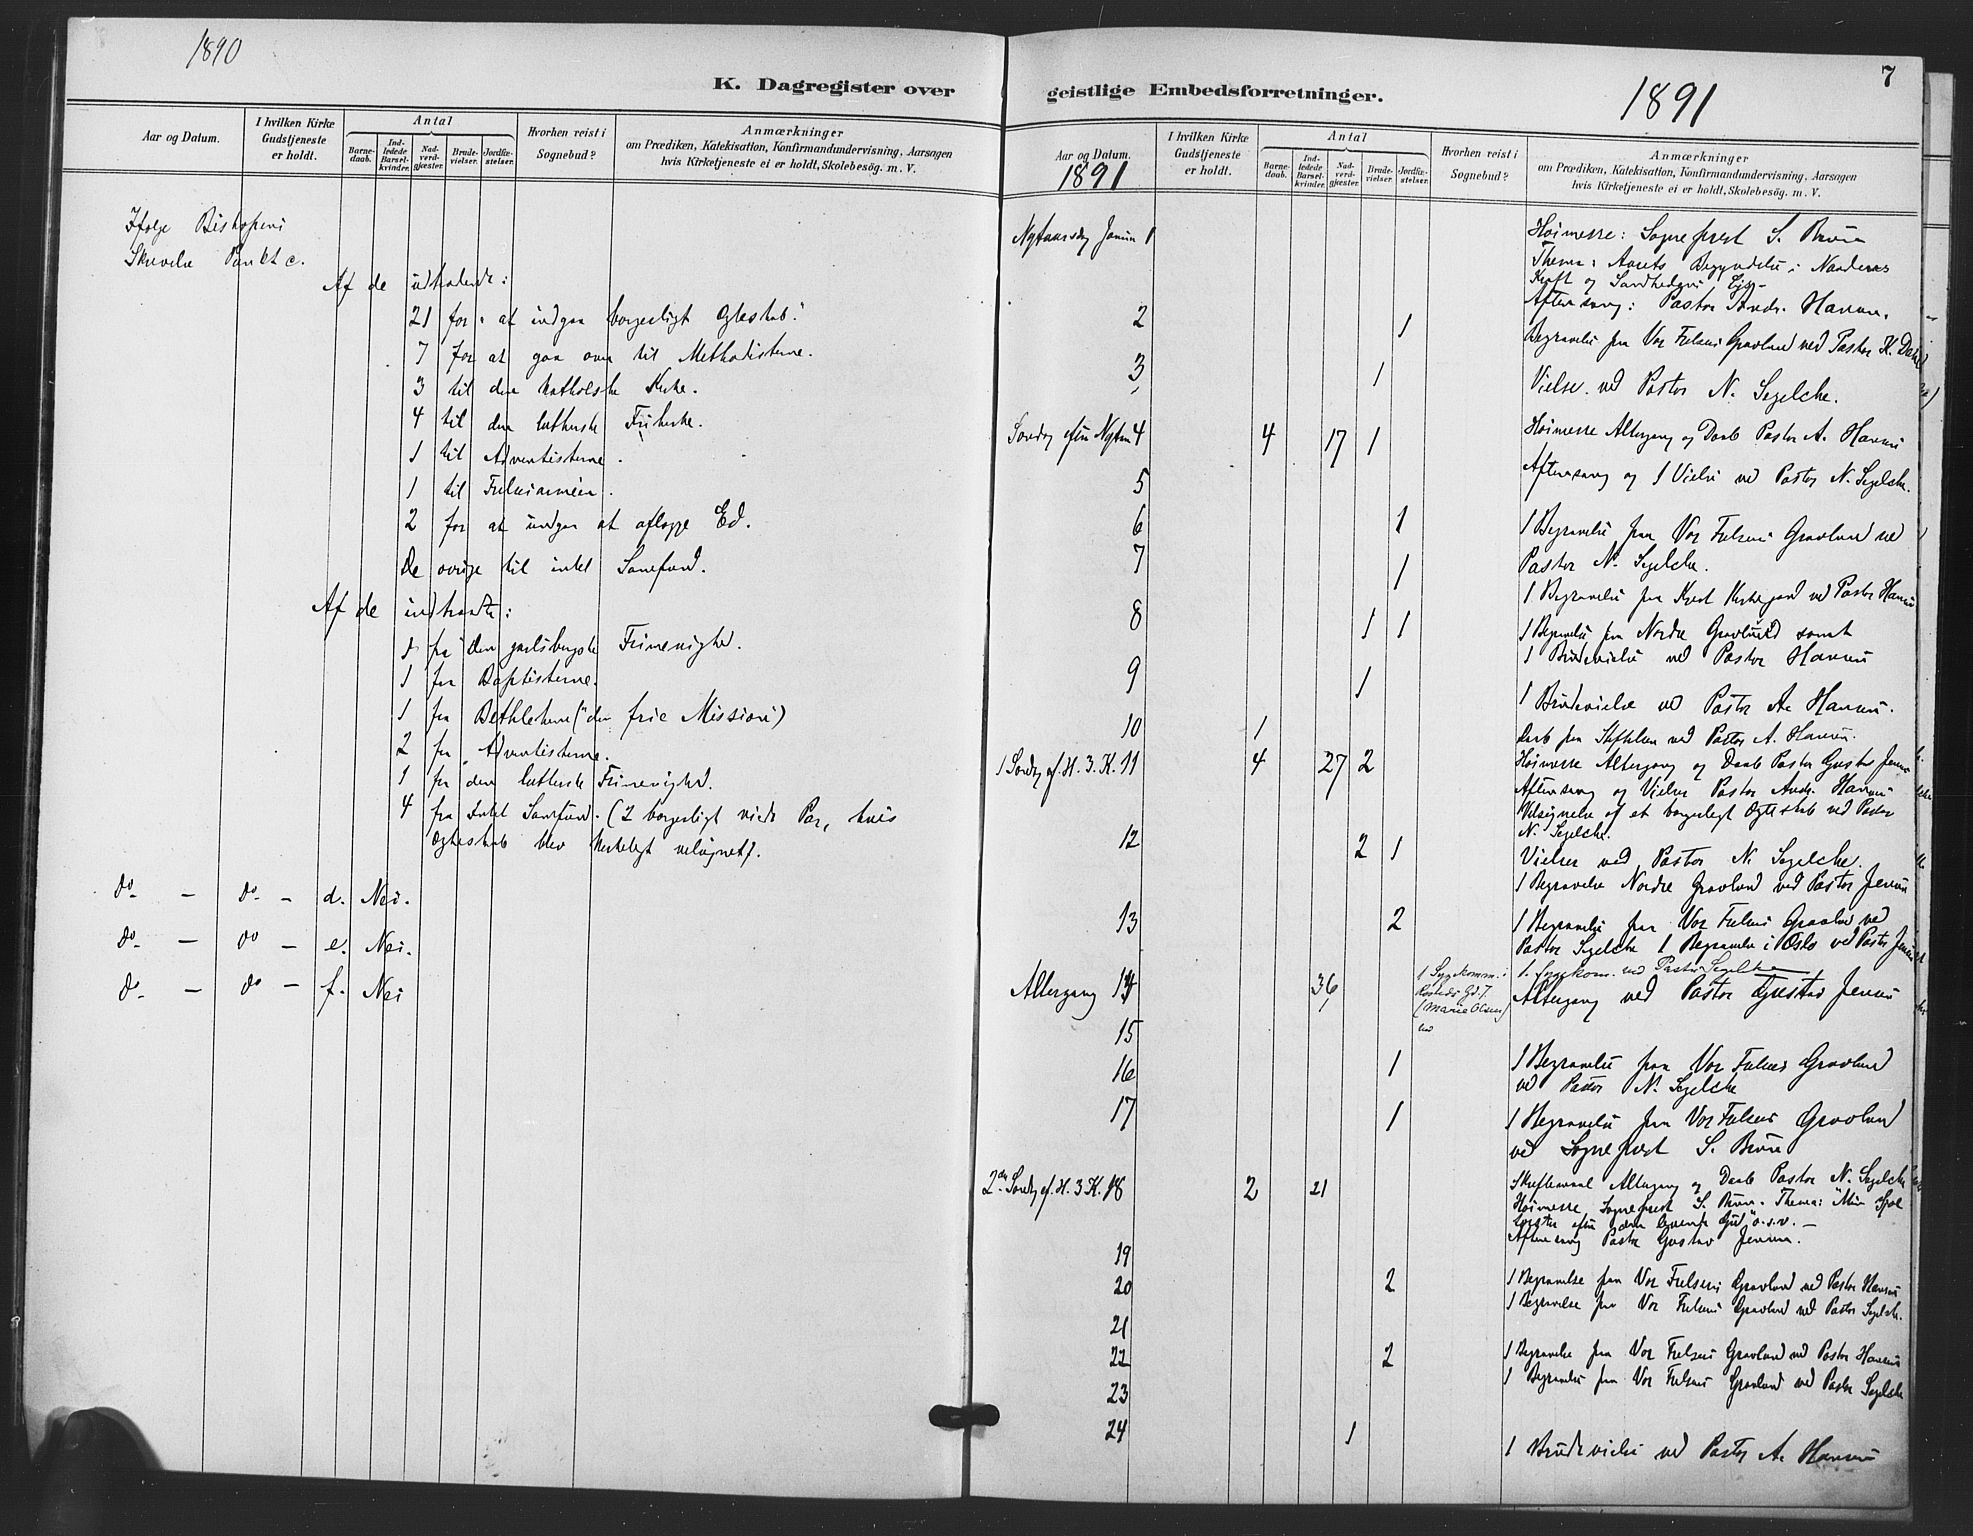 1890
K. Dagregister over
Aar og Datum.
I hvilken Kirke Gudstjeneste er holdt.
Antal
Barnedaab.
Indledede Barselkvinder.
Nadverdgjæster.
Brudevielser.
Jordfæstelser.
Hvorhen reist i Sognebud?
Anmærkninger
om Prædiken, Katekisation, Konfirmandundervisning, Aarsagen
hvis Kirketjeneste ei er holdt, Skolebesøg. m. V.
Ifølge Bispens
Skrivelse Punkt c.
Af de udtraadte:
21 for at indgaa borgerligt Ægteskab.
7 for at gaa over til Methodisterne.
3 til den katholske Kirke.
4 til den lutherske Frikirke.
1 til Adventisterne.
1 til Frelsesarmeen.
2 for at undgaa at aflægge Ed.
De øvrige til intet Samfund.
Af de indtraadte:
fra den Frimenighed.
1 fra Baptisterne.
1 fra Bethlehem ("den frie Mission")
2 fra Adventisterne.
1 fra den lutherske Frimenighed.
4 fra intet Samfund. (2 borgerligt viede Par, hvis
Ægteskab blev kirkeligt velsignet).
do - do - d. Nei.
do - do - e. Nei.
do - do - f. Nei
7
geistlige Embedsforretninger.
1891
Aar og Datum.
1891
I hvilken Kirke Gudstjeneste er holdt.
Antal
Barnedaab.
Indledede Barselkvinder.
Nadverdgjæster.
Brudevielser.
Jordfæstelser.
Hvorhen reist i Sognebud?
Anmærkninger
om Prædiken, Katekisation, Konfirmandundervisning, Aarsagen
hvis Kirketjeneste ei er holdt, Skolebesøg. m. V.
Nytaarsdag Januar 1 Høimesse: Sogneprest S. Bruun
Thema: Aarets Begyndelse i Naadens
Kraft og Sandhedens
Aftensang: Pastor Andr. Hansen.
2 1 Begravelse fra Vor Frelsers Gravlund ved Pastor K.
3 1 Vielse ved Pastor N. Segelcke.
Søndag efter Nytaar 4 4 17 1 Høimesse Altergang og Daab Pastor A. Hansen
Aftensang og 1 Vielse ved Pastor N. Segelcke.
5
6 1 1 Begravelse fra Vor Frelsers Gravlund ved
Pastor N. Segelcke.
7 1 1 Begravelse fra Krist Kirkegaard ved Pastor Hansen
8 1 1 1 Begravelse fra Nordre Gravlund samt
1 Brudevielse ved Pastor Hansen
9 1 1 Brudevielse ved Pastor A. Hansen.
10 1 Daab fra Stiftelsen ved Pastor A. Hansen.
1 Søndag ef. H. 3. K. 11 4 27 2 Høimesse Altergang og Daab Pastor Gustav Jensen
Aftensang og Vielse Pastor Andr. Hansen
Velsignelse af et borgerligt Ægteskab ved Pastor
N. Segelcke.
12 2 1 Vielser ved Pastor N. Segelcke.
1 Begravelse Nordre Gravlund ved Pastor Jensen
13 2 1 Begravelse fra Vor Frelsers Gravlund ved
Pastor Segelcke 1 Begravelse i Oslo ved Pastor Jensen
Altergang 14 36 1 Sygekomm. i
Gd. 7
(Marie Olsen)
1. Sygekom. ved Pastor Segelcke
Altergang ved Pastor Gustav Jensen
15
16 1 1 Begravelse fra Vor Frelsers Gravlund
ved Pastor N. Segelcke
17 1 1 Begravelse fra Vor Frelsers Gravlund
ved Sogneprest S. Bruun
2den Søndag ef. H. 3 K. 18 2 21 Skriftemaal Altergang og Daab Pastor N. Segelcke
Høimesse Sogneprest S. Bruun. Thema: "Min Sjæl
tørster efter den levende Gud" o.s.v. -
Aftensang Pastor Gustav Jensen.
19
20 2 1 Begravelse fra Vor Frelsers Gravlund ved Pastor Hansen
1 Begravelse fra Vor Frelsers Gravlund ved Pastor Segelcke.
21
22 2 1 Begravelse fra Vor Frelsers Gravlund ved Pastor Hansen
1 Begravelse fra Vor Frelsers Gravlund ved Pastor Segelcke
23
24 1 1 Brudevielse ved Pastor A. Hansen